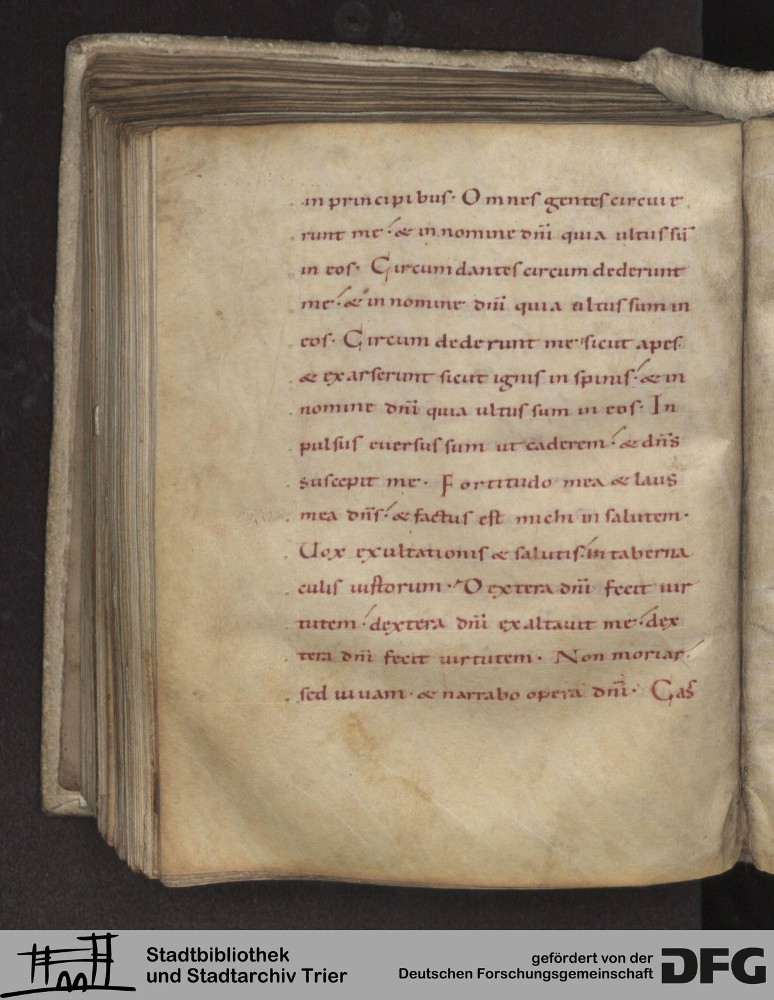 in principibus· Omnes gentes circuie
runt me·́ & in nomine dn̄i quia ultus sū
in eos· Circumdantes circumdederunt
me·́ & in nomine dn̄i quia ultus sum in
eos· Circumdederunt me sicut apes·
& exarserunt sicut ignis in spinis·́ & in
nomine dn̄i quia ultus sum in eos· In
pulsus euersus sum ut caderem·́ & dn̄s
suscepit me· Fortitudo mea & laus
mea dn̄s·́ & factus est michi in salutem·
Uox exultationis & salutis·́ in taberna
culis iustorum· Dextera dn̄i fecit uir
tutem·́ dextera dn̄i exaltauit me·́ dex
tera dn̄i fecit uirtutem· Non moriar·́
sed uiuam· & narrabo opera dn̄i· Cas
Stadtbibliothek
und Stadtarchiv Trier
gefördert von der
Deutschen Forschungsgemeinschaft DFG